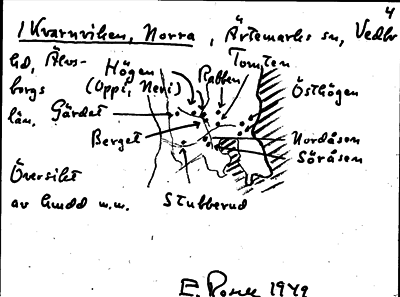 4
1 Kvarnviken, Norra, Ärtemarks sn, Vedbo
hd, Älvs-
borgs
län.
Högen
(Oppi, Neri)
Rabben
Tomten
Östhögen
Gärdet
Berget
Nordåsen
Söråsen
Översikt
av
m.m.
Stubberud
1949